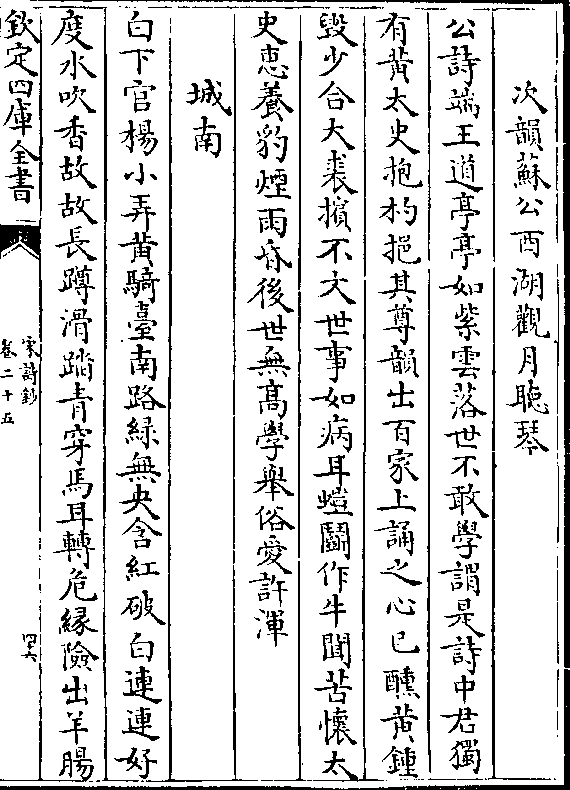 次韻蘇公西湖觀月聽琴
公詩端王道亭亭如紫雲落世不敢學謂是詩中君獨
有黄太史抱杓挹其尊韻出百家上誦之心已醺黄鍾
毀少合大裘擯不文世事如病耳螘鬭作牛聞苦懷太
史惠養豹煙雨昏後世無髙學舉俗愛許渾
城南
白下官楊小弄黄騎臺南路緑無央含紅破白連連好
度水吹香故故長蹲滑踏青穿馬耳轉危縁險出羊腸
欽定四庫全書
宋詩鈔
卷二十五
四六